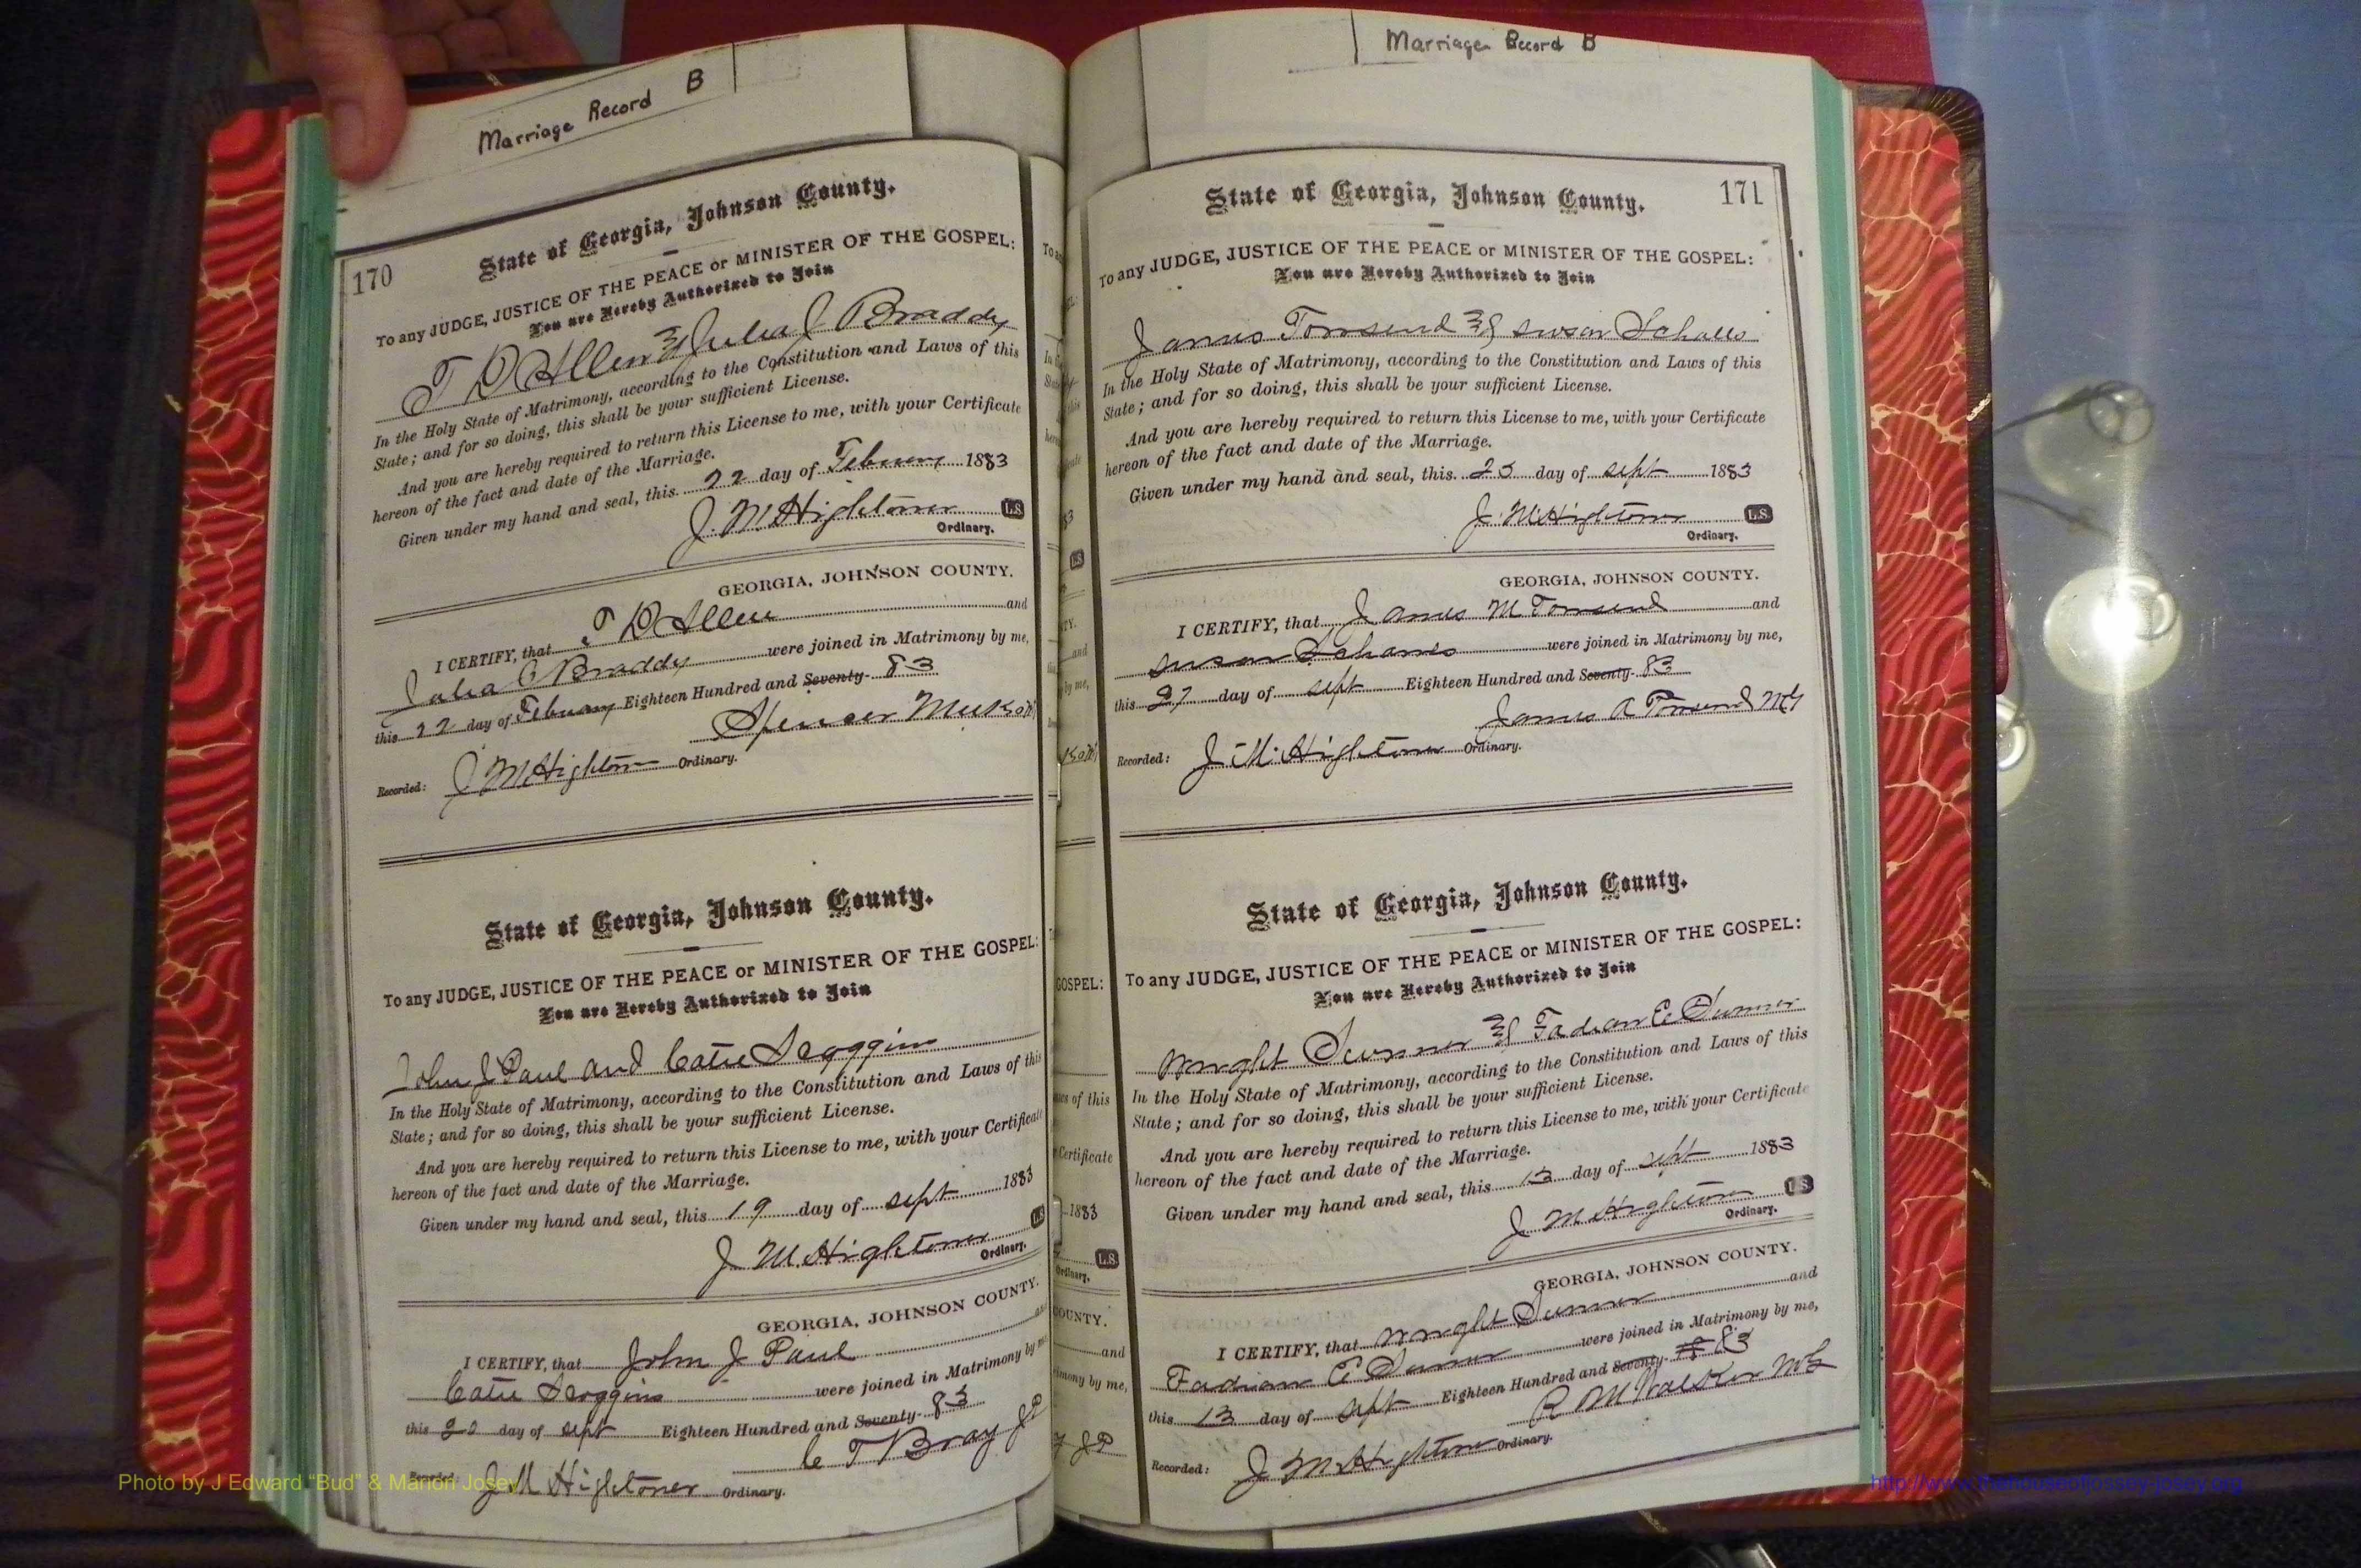 Marriage Record B
170
State of Georgia, Johnson County.
To any JUDGE, JUSTICE OF THE PEACE or MINISTER OF THE GOSPEL:
You are Hereby Authorized to Join
T D Allen & Julia J Braddy
In the Holy State of Matrimony, according to the Constitution and Laws of this
State; and for so doing, this shall be your sufficient License.
And you are hereby required to return this License to me, with your Certificate
hereon of the fact and date of the Marriage.
Given under my hand and seal, this 22 day of February 1883
J. M. Hightower L.S.
Ordinary.
GEORGIA, JOHNSON COUNTY.
I CERTIFY, that T D Allen and
Julia Braddy were joined in Matrimony by me,
this 22 day of February Eighteen Hundred and Seventy- 83
Spencer
Recorded: J M Hightower Ordinary.
State of Georgia, Johnson County.
To any JUDGE, JUSTICE OF THE PEACE or MINISTER OF THE GOSPEL:
You are Hereby Authorized to Join
John J Paul and Catie Scoggins
In the Holy State of Matrimony, according to the Constitution and Laws of this
State; and for so doing, this shall be your sufficient License.
And you are hereby required to return this License to me, with your Certificate
hereon of the fact and date of the Marriage.
Given under my hand and seal, this 19 day of sept 1883
J M Hightower L.S.
Ordinary.
GEORGIA, JOHNSON COUNTY.
I CERTIFY, that John J Paul and
Catie Scoggins were joined in Matrimony by me
this day of sept Eighteen Hundred and Seventy- 83
C T Bray JP
Recorded: J M Hightower Ordinary.
Marriage Record B
171
State of Georgia, Johnson County.
To any JUDGE, JUSTICE OF THE PEACE or MINISTER OF THE GOSPEL:
You are Hereby Authorized to Join
James Tomsend & susan
In the Holy State of Matrimony, according to the Constitution and Laws of this
State; and for so doing, this shall be your sufficient License.
And you are hereby required to return this License to me, with your Certificate
hereon of the fact and date of the Marriage.
Given under my hand and seal, this 25 day of sept 1883
J. M. Hightower L.S.
Ordinary.
GEORGIA, JOHNSON COUNTY.
I CERTIFY, that James M Tomsend and
susan were joined in Matrimony by me,
this 27 day of sept Eighteen Hundred and Seventy- 83
James A Tomsend MG
Recorded: J. M. Hightower Ordinary.
State of Georgia, Johnson County.
To any JUDGE, JUSTICE OF THE PEACE or MINISTER OF THE GOSPEL:
You are Hereby Authorized to Join
Wright Sumner & Fadian E Sumner
In the Holy State of Matrimony, according to the Constitution and Laws of this
State; and for so doing, this shall be your sufficient License.
And you are hereby required to return this License to me, with your Certificate
hereon of the fact and date of the Marriage.
Given under my hand and seal, this 13 day of sept 1883
J M Hightower L.S.
Ordinary.
GEORGIA, JOHNSON COUNTY.
I CERTIFY, that Wright Sumner and
Fadian E Sumner were joined in Matrimony by me,
this 13 day of sept Eighteen Hundred and Seventy- 83
R M Walker MG
Recorded: J M Hightower Ordinary.
Photo by J Edward “Bud” & Marion Josey
http://www.thehouseofjossey-josey.org